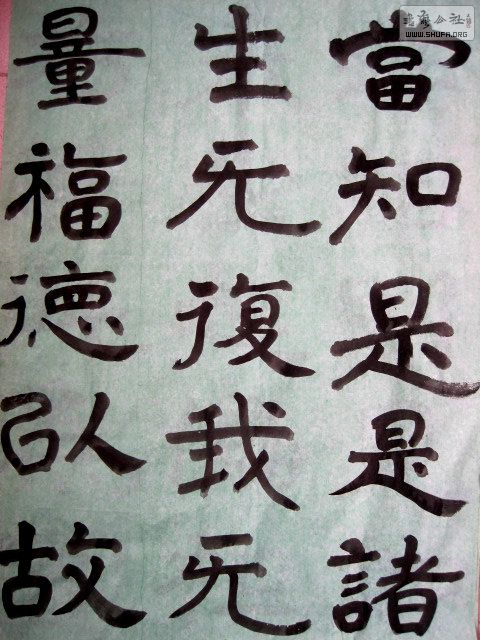 當知是是諸
生无復我无
量福德以故
WWW.SHUFA.ORG